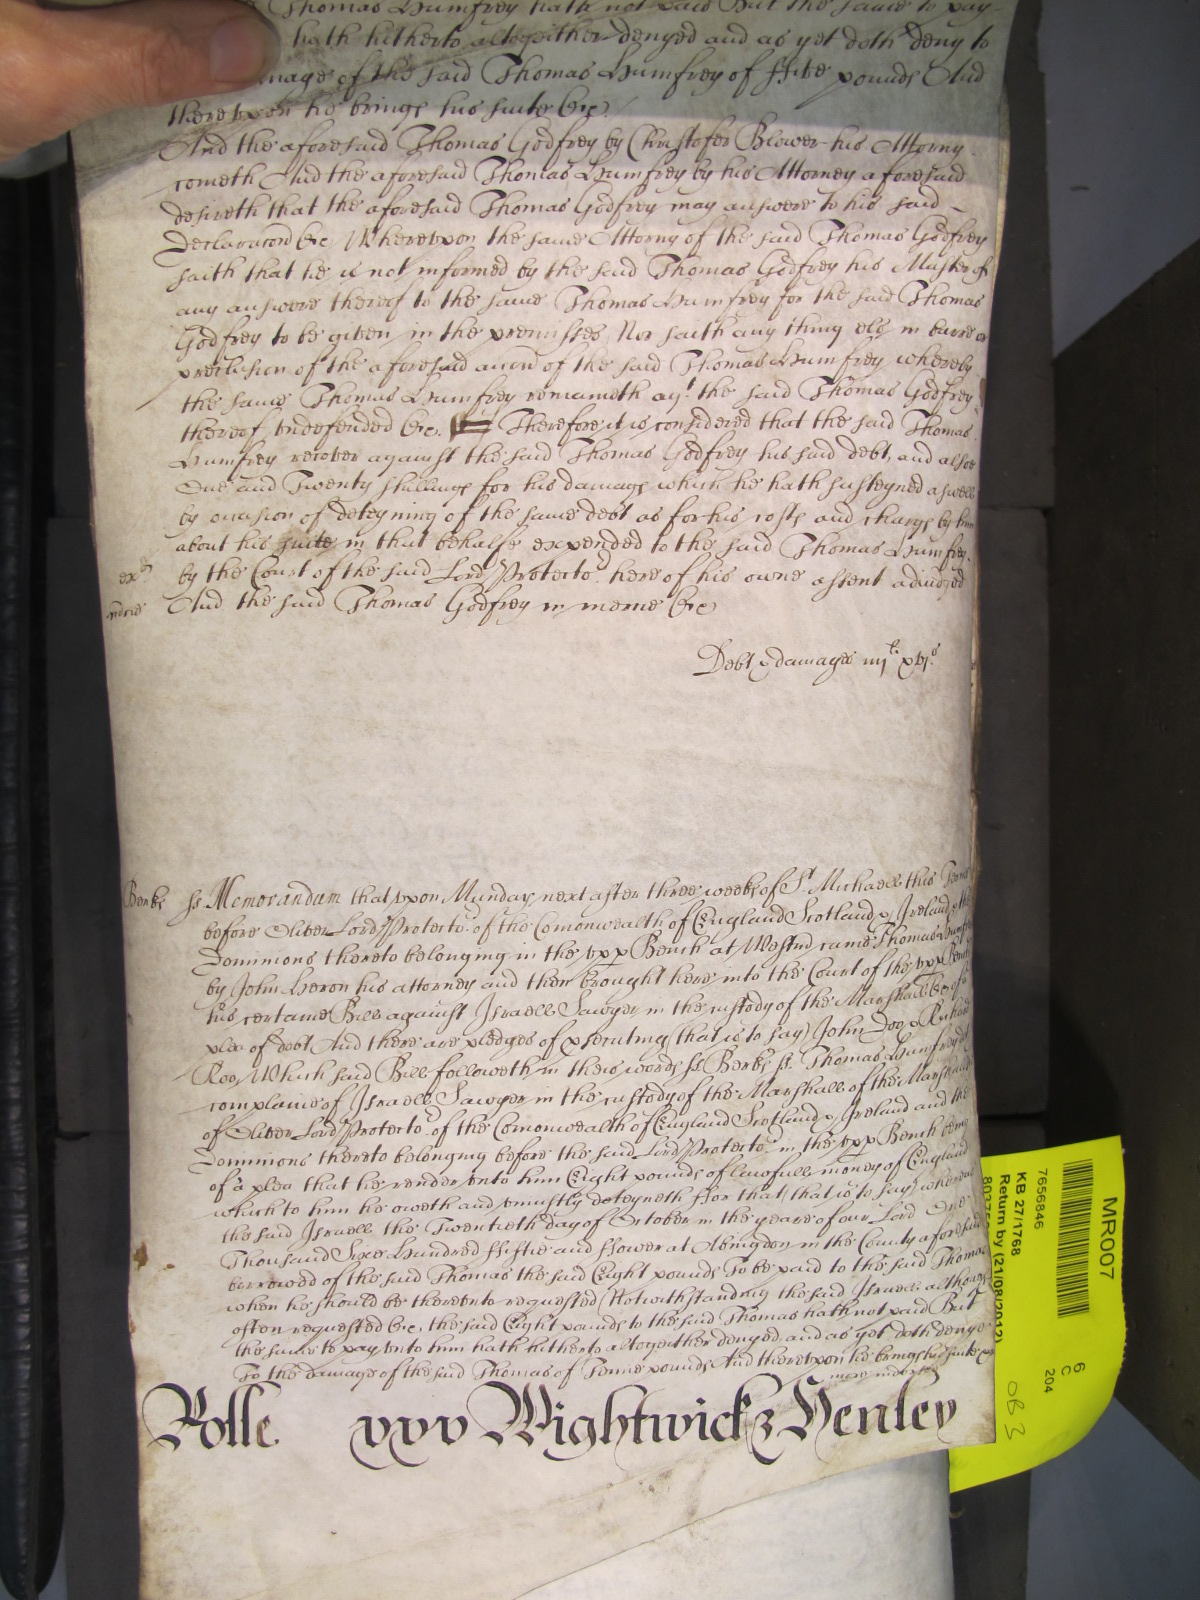 Thomas Humfrey hath not paid But the same to pay
hath hitherto altogeither denyed and as yet doth deny to
damage of the said Thomas Humfrey of ffive pounds And
thereupon he brings his suite &c
And the aforesaid Thomas Godfrey by Christofer Blower his Attorny
cometh And the aforesaid Thomas Humfrey by his Attorney aforesaid
desireth that the aforesaid Thomas Godfrey may answere to his said
declaracon &c Whereupon the same Attorny of the said Thomas Godfrey
saith that he is not informed by the said Thomas Godfrey his Master of
any answere thereof to the same Thomas Humfrey for the said Thomas
Godfrey to be given in the premisses Nor saith any thing els in barre or
preclusion of the aforesaid accon of the said Thomas Humfrey whereby
the same Thomas Humfrey remaineth agt the said Thomas Godfrey
thereof undefended &c. Therefore it is considered that the said Thomas
Humfrey recover against the said Thomas Godfrey his said debt and alsoe
One and Twenty shillings for his damage which he hath susteyned aswell
by occasion of deteyning of the same debt as for his costs and charge by him
about his suite in that behalfe expended to the said Thomas Humfrey
by the Court of the said Lord Protector here of his owne assent adiudged
And the said Thomas Godfrey in mercie &c
Debt & damages iiijl xvjs
Berks ss Memorandum that upon Munday next after three weekes of St Michaell this Terme
before Oliver Lord Protector of the Comonwealth of England Scotland & Ireland & the
Dominions thereto belonging in the upp Bench at Westm came Thomas Humfrey
by John Heron his attorney and then brought here into the Court of the upp Bench
his certaine Bill against Israell Sawyer in the custody of the Marshall &c of a
plea of debt And there are pledges of prosecuting (that is to say) John Doo & Richard
Roo, Which said Bill followeth in theis words ss Berks ss. Thomas Humfrey
complaine of Israell Sawyer in the custody of the Marshall of the Marshals
of Oliver Lord Protector of the Comonwealth of England Scotland & Ireland and the
Dominions thereto belonging before the said Lord Protector in the upp Bench being
of a plea that he render unto him Eight pounds of lawfull money of England
which to him he oweth and uniustly deteyneth ffor that, that is to say, whereas
the said Israell the Twentieth day of October in the yeare of our Lord One
Thousand Sixe Hundred ffiftie and ffower at Abingdon in the County aforesaid
borrowed of the said Thomas the said Eight pounds To be paid to the said Thomas
when he should be thereunto requested Notwithstanding the said Israell although
often requested &c, the said Eight pounds to the said Thomas hath not paid But
the same to pay unto him hath hitherto altogeither denyed and as yet doth denye
To the damage of the said Thomas of Tenne pounds And thereupon he brings his suite
Rolle. xxv Wightwick & Henley
MR007
7656846
KB 27/1768
Return by (21/08/2012)
6
C
204
OB 3